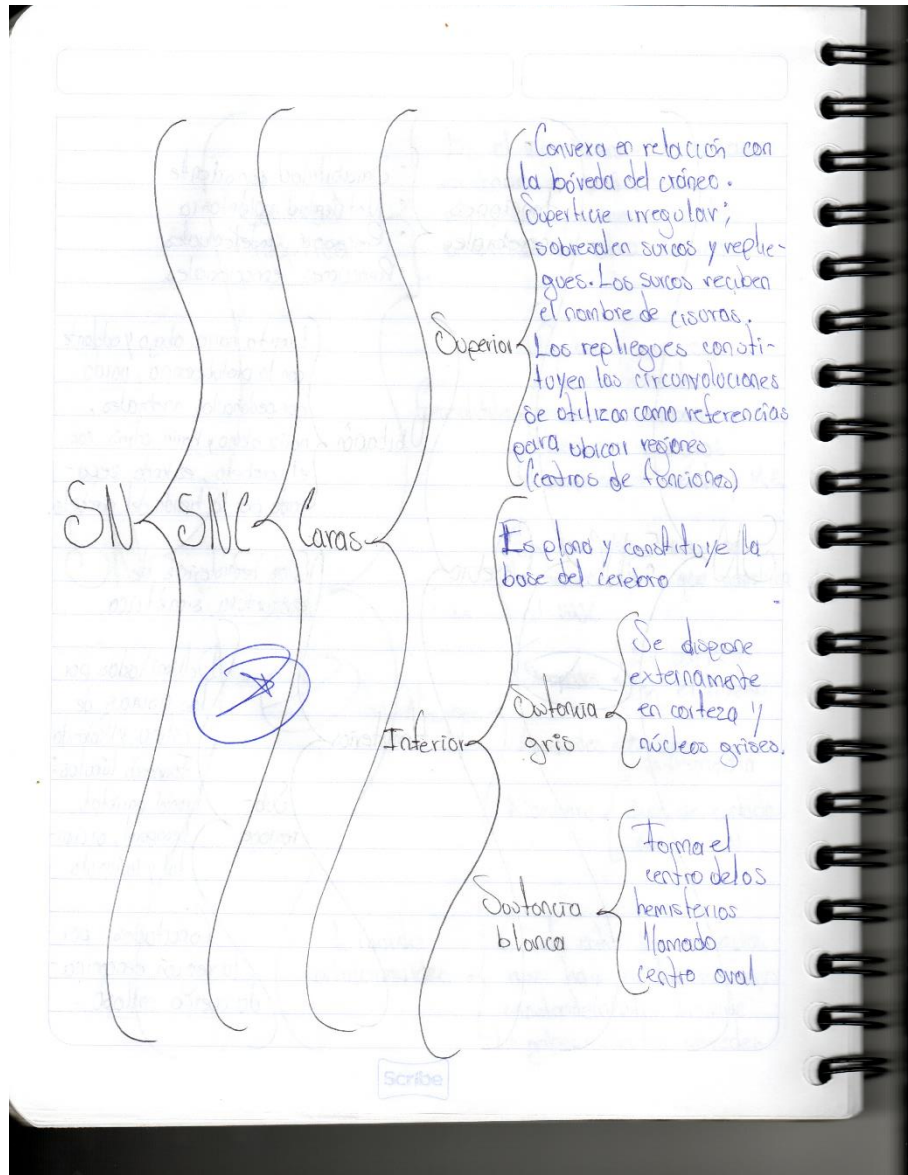 Convexa en relación con
la bóveda del cráneo.
Superficie irregular;
sobresalen surcos y replie-
gues. Los surcos reciben
el nombre de cisuras.
Superior
Los repliegues consti-
tuyen las circonvoluciones
se utilizan como referencias
para ubicar regiones
(centros de funciones)
SN
SNC
Caras
Es plana y constituye la
base del cerebro
Inferior
Sustancia
gris
Se dispone
externamente
en corteza y
núcleos grises.
Sustancia
blanca
Forma el
centro de los
hemisferios
llamado
centro oval
Scribe